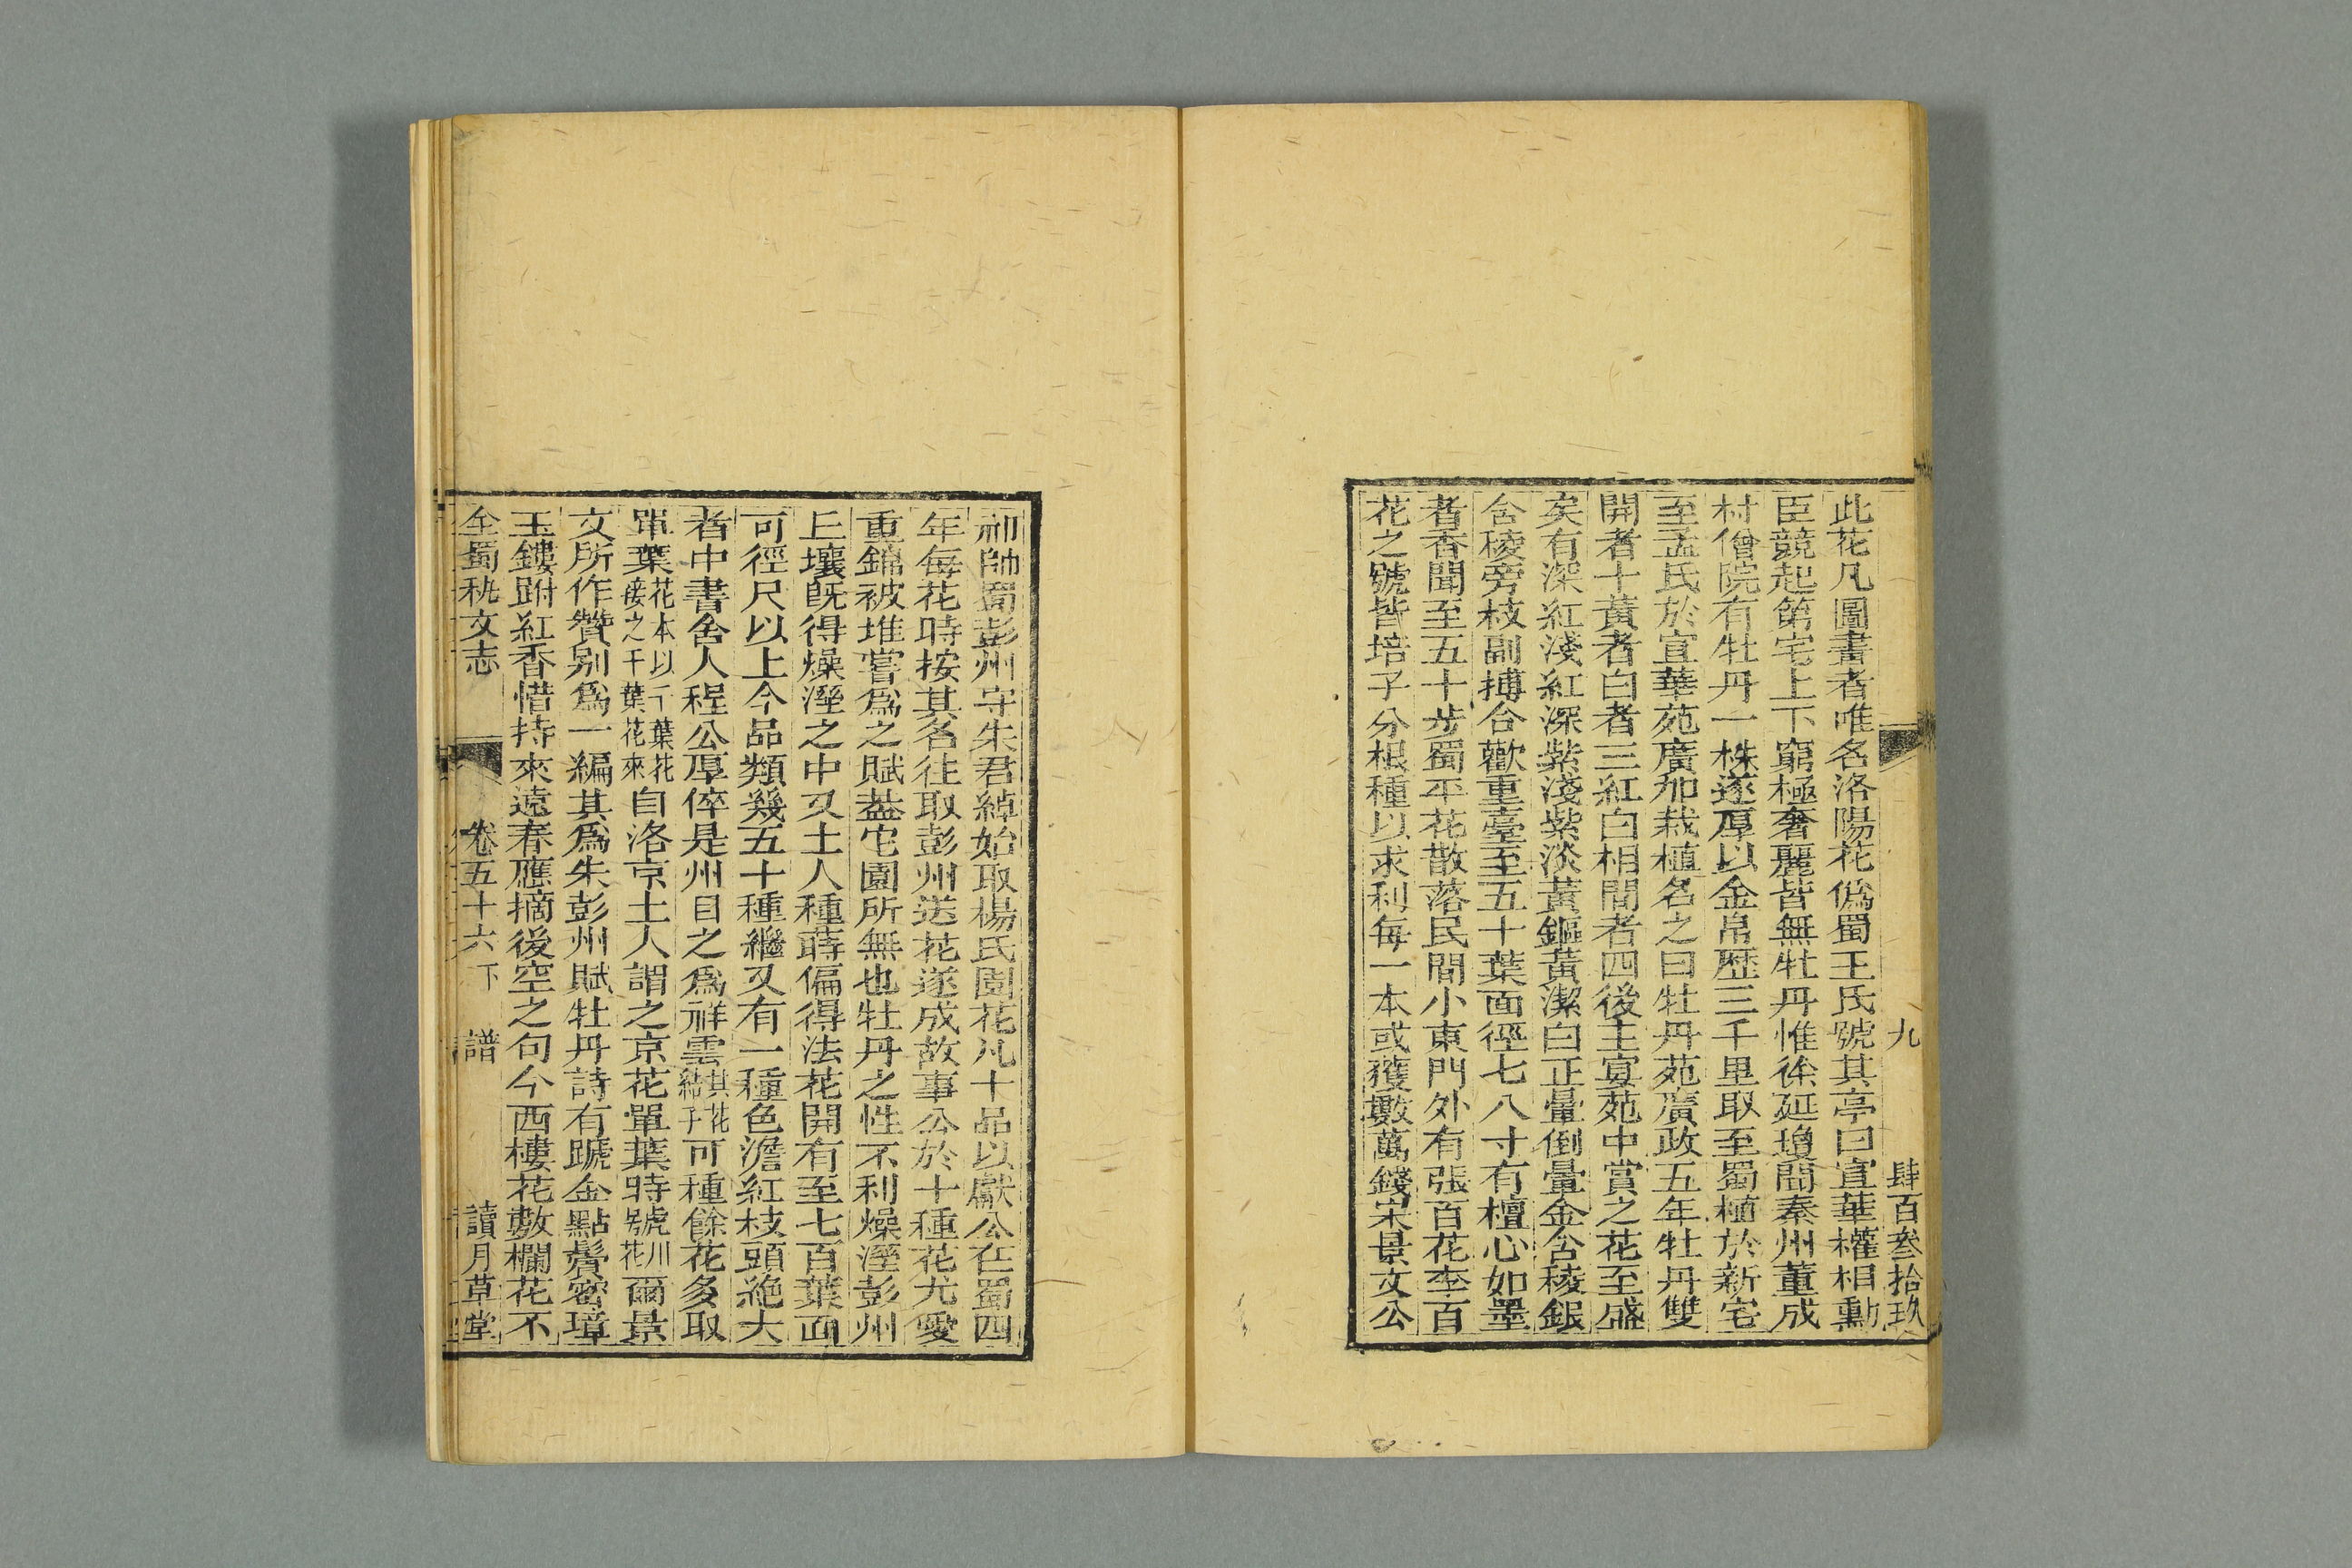 九 肆百叄拾玖
此花凡圖畫者唯名洛陽花僞蜀王氏號其亭曰宣華權相勳
臣競起第宅上下窮極奢麗皆無牡丹惟徐延瓊聞秦州董成
村僧院有牡丹一株遂厚以金帛歷三千里取至蜀植於新宅
至孟氏於宣華苑廣加栽植名之曰牡丹苑廣政五年牡丹雙
開者十黃者白者三紅白相間者四後主宴苑中賞之花至盛
矣有深紅淺紅深紫淺紫淡黃鏂黃潔白正暈倒暈金含稜銀
含稜旁枝副搏合歡重臺至五十葉面徑七八寸有檀心如墨
者香聞至五十步蜀平花散落民間小東門外有張百花李百
花之號皆培子分根種以求利每一本或獲數萬錢宋景文公
祁帥蜀彭州守朱君綽始取楊氏園花凡十品以獻公在蜀四
年每花時按其名往取彭州送花遂成故事公於十種花尤愛
重錦被堆嘗爲之賦葢它園所無也牡丹之性不利燥溼彭州
上壤旣得燥溼之中又土人種蒔偏得法花開有至七百葉面
可徑尺以上今品類幾五十種繼又有一種色澹紅枝頭絶大
者中書舍人程公厚倅是州目之爲祥雲其花結子可種餘花多取
單葉花本以千葉花接之千葉花來自洛京土人謂之京花單葉時號川花爾景
文所作贊别爲一編其爲朱彭州賦牡丹詩有蹏金點鬢密璋
玉鏤跗紅香惜持來遠春應摘後空之句今西樓花數欄花不
全蜀秇文志 卷五十六下 譜 讀月草堂